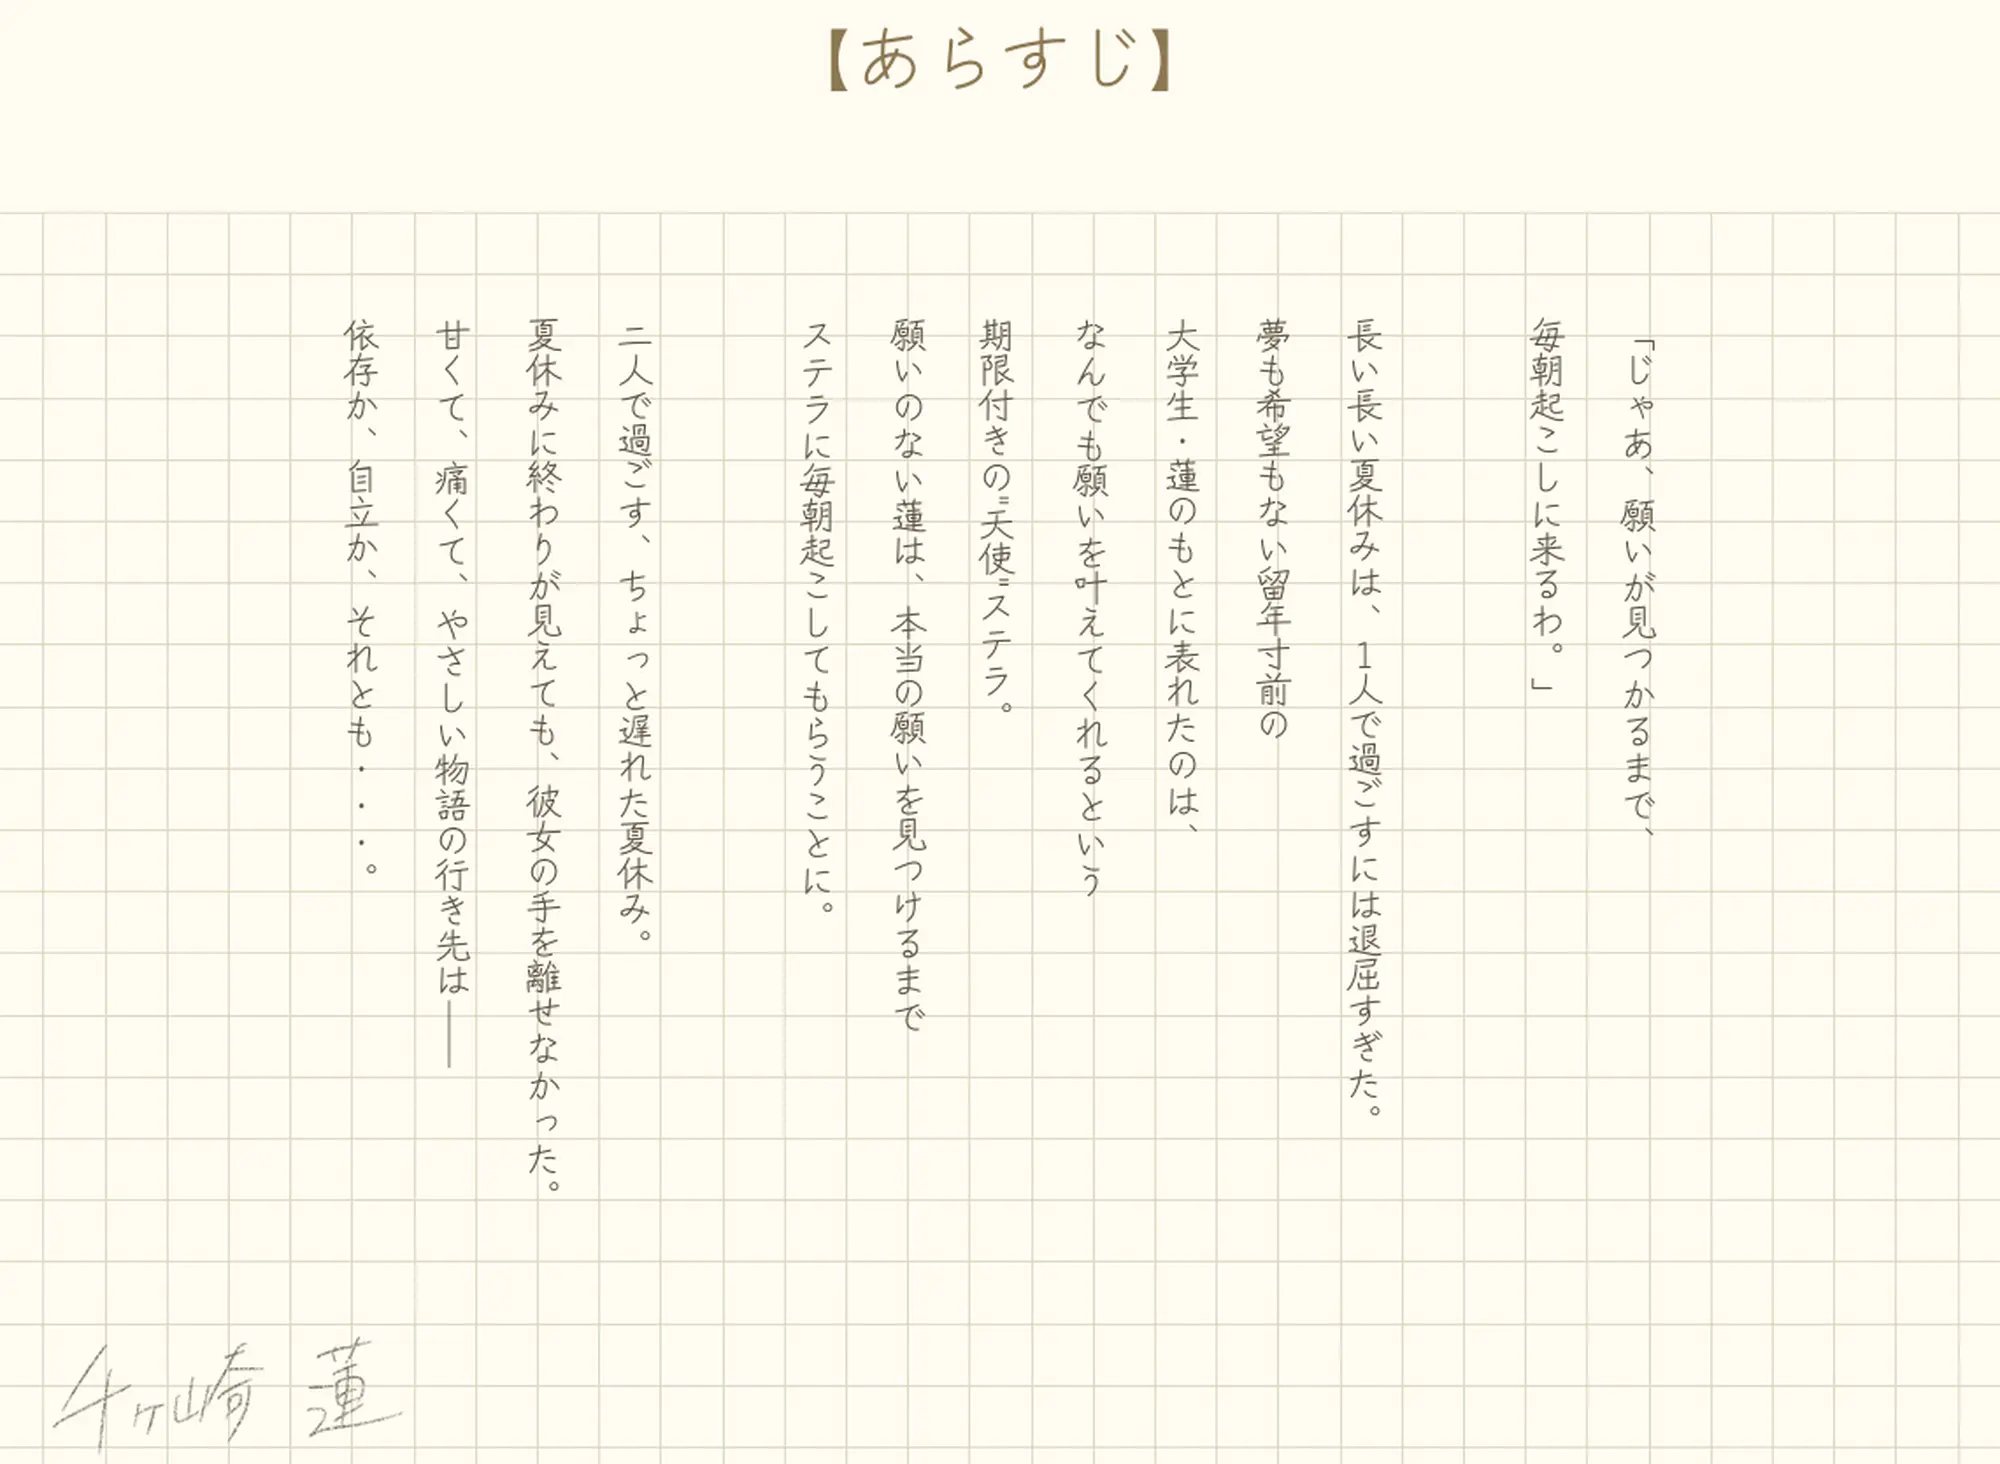 【あらすじ】
「じゃあ、願いが見つかるまで、
毎朝起こしに来るわ。」
長い長い夏休みは、1人で過ごすには退屈すぎた。
夢も希望もない留年寸前の
大学生・蓮のもとに表れたのは、
なんでも願いを叶えてくれるという
期限付きの〝天使〟ステラ。
願いのない蓮は、本当の願いを見つけるまで
ステラに毎朝起こしてもらうことに。
二人で過ごす、ちょっと遅れた夏休み。
夏休みに終わりが見えても、彼女の手を離せなかった。
甘くて、痛くて、やさしい物語の行き先は――
依存か、自立か、それとも・・・。
千ヶ崎 蓮